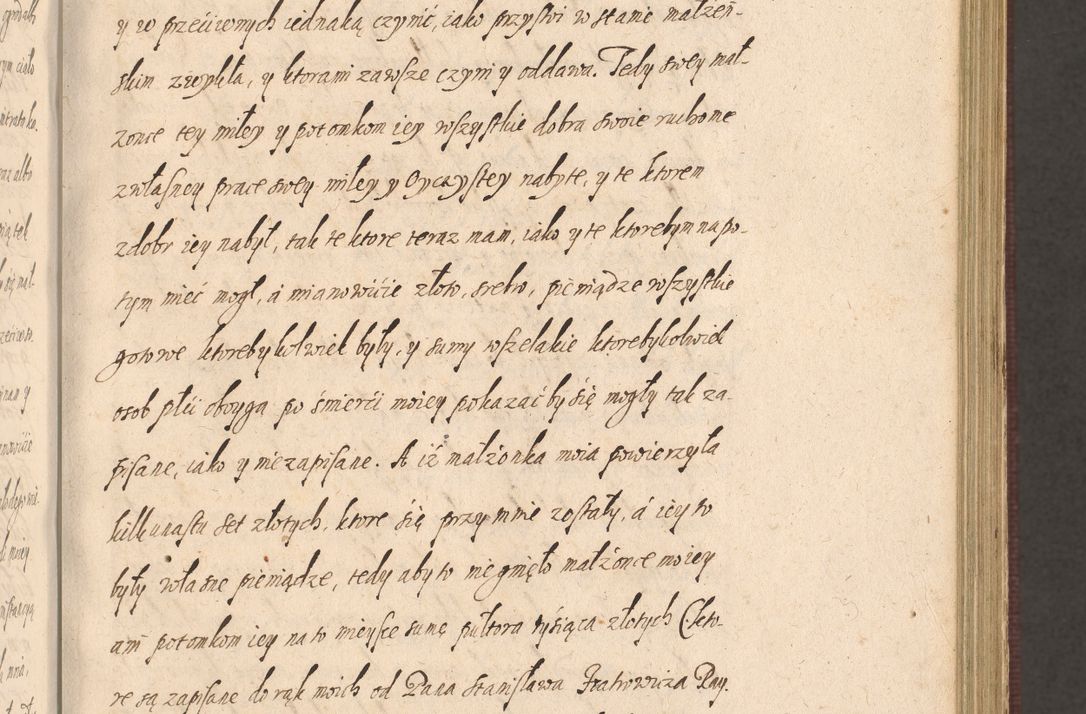 y w przeciwnych iednaką czynić, iako przystoi w stanie małzeń-
skim zwykła, y ktorami zawsze czyni y oddawa. Tedy swey mał-
zonce tey miłey y potomkom iey wszystkie dobra swoie ruchome
z własney prace swey miłey y Oyczystey nabyte, y te ktorem
z dobr iey nabył, tak te ktore teraz mam, iako y te ktorebym napo-
tym mieć mogł, a mianowićie złoto, srebro, pieniądze wszystkie
gotowe ktorebykolwiek były, y sumy wszelakie ktorebykolwiek
osob płći oboyga po śmierći moiey pokazać by się mogły tak za-
pisane, iako y niezapisane. A iż małżonka moia powierzyła
kilkunastu set złotych, ktore się przy mnie zostały, á iey to
były własne pieniądze, tedy aby to nieginęło małżonce moiey
ani potomkom iey na to mieysce sumę pułtora tysiąca złotych (kto-
re są zapisane do rąk moich od Pana Stanisława